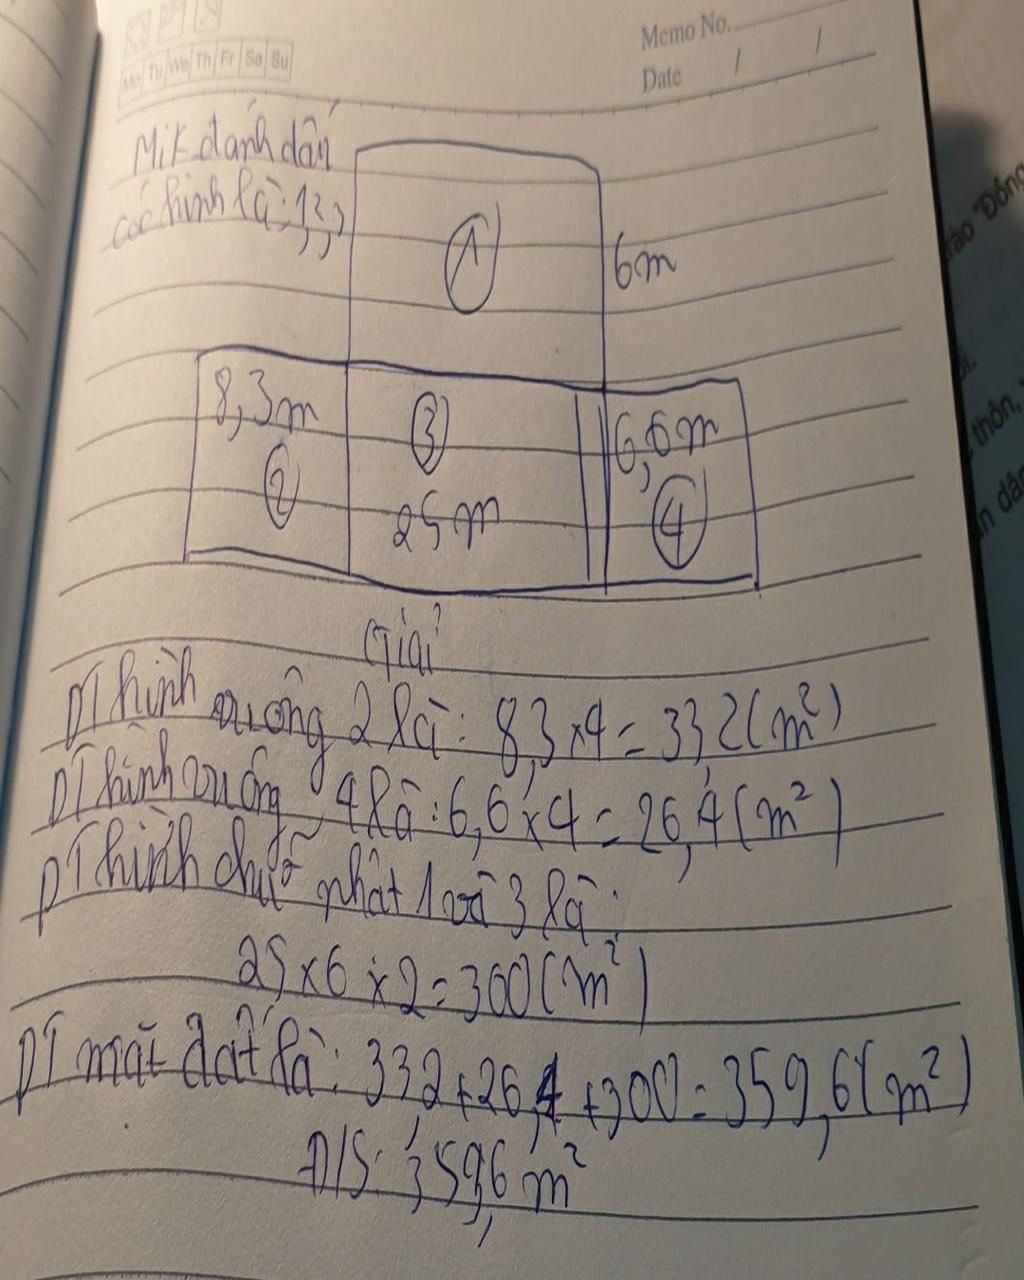 Memo No.
Mo Tu We Th Fr Sa Su
Date / /
Mik đánh dấu
các hình là: 1, 2, 3
1
6m
8,3m
3
6,6m
2
25m
4
Giải
DT hình vuông 2 là: 8,3 x 4 = 33,2 (m²)
DT hình vuông 4 là: 6,6 x 4 = 26,4 (m²)
DT hình chữ nhật 1 và 3 là:
25 x 6 x 2 = 300 (m²)
DT mãt đất là: 33,2 + 26,4 + 300 = 359,6 (m²)
Đ/S: 359,6 m²
tạo "Đồng
thôn,
n dân